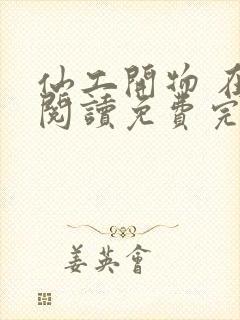 仙工開物 在
閱讀免費完
姜英會